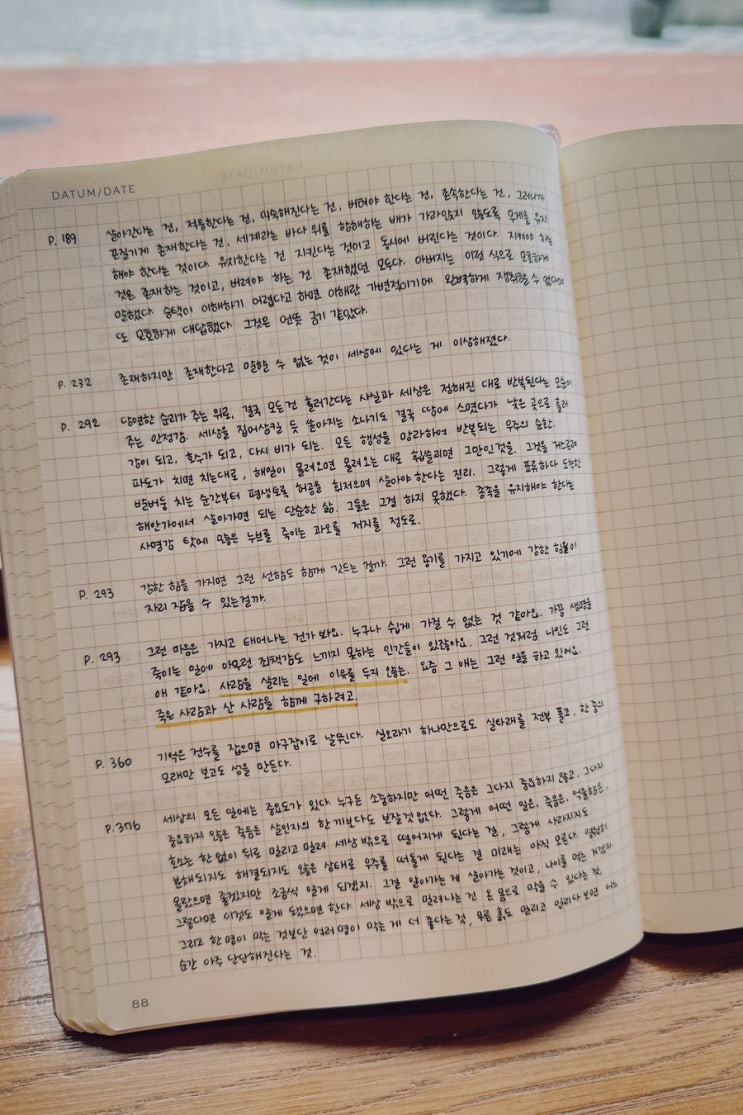 DATUM/DATE
P. 189 살아간다는 건, 적응한다는 건, 익숙해진다는 건, 버텨야 한다는 건, 존속한다는 건, 그러니까
끈질기게 존재한다는 건, 세계라는 바다 위를 항해하는 배가 가라앉지 않도록 무게를 유지
해야 한다는 것이다. 유지한다는 건 지킨다는 것이고 동시에 버린다는 것이다. 지켜야 하는
것은 존재하는 것이고, 버려야 하는 건 존재했던 모두다. 아버지는 이런 식으로 모호하게
말했다. 승택이 이해하기 어렵다고 하면 이해란 가변적이기에 완벽하게 쟁취할 수 없다며
또 모호하게 대답했다. 그것은 언뜻 금기 같았다.
P. 232 존재하지만 존재한다고 말할 수 없는 것이 세상에 있다는 게 이상해졌다.
P. 292 당연한 순리가 주는 위로, 결국 모든 건 흘러간다는 사실과 세상은 정해진 대로 반복된다는 모순이
주는 안정감. 세상을 집어삼킬 듯 쏟아지는 소나기도 결국 땅에 스몄다가 낮은 곳으로 흘러
강이 되고, 호수가 되고, 다시 비가 되는. 모든 행성을 망라하여 반복되는 우주의 순환.
파도가 치면 치는대로, 해일이 몰려오면 몰려오는 대로 휩쓸리면 그만인 것을. 그것을 거스르려
발버둥 치는 순간부터 평생토록 허공을 휘저으며 살아야 한다는 진리. 그렇게 표류하다 도착한
해안가에서 살아가면 되는 단순한 삶. 그들은 그걸 하지 못했다. 종족을 유지해야 한다는
사명감 탓에 만든 누브를 죽이는 과오를 저지를 정도로.
P. 293 강한 힘을 가지면 그런 선함도 함께 깃드는 걸까. 그런 용기를 가지고 있기에 강한 힘이
자리 잡을 수 있는걸까.
P. 293 그런 마음은 가지고 태어나는 건가 봐요. 누구나 쉽게 가질 수 없는 것 같아요. 가끔 생명을
죽이는 일에 아무런 죄책감도 느끼지 못하는 인간들이 있잖아요. 그런 것처럼 나인도 그런
애 같아요. 사람을 살리는 일에 이유를 두지 않는. 요즘 그 애는 그런 일을 하고 있어요.
죽은 사람과 산 사람을 함께 구하려고.
P. 360 기억은 건수를 잡으면 마구잡이로 날뛴다. 실오라기 하나만으로도 실타래를 전부 풀고, 한 줌의
모래만 보고도 성을 만든다.
P. 376 세상의 모든 일에는 중요도가 있다. 누구든 소중하지만 어떤 죽음은 그다지 중요하지 않고, 그다지
중요하지 않은 죽음은 살인자의 한 끼보다도 보잘것 없다. 그렇게 어떤 일은, 죽음은, 억울함은,
호소는 한 없이 뒤로 밀리고 밀려 세상 밖으로 떨어지게 된다는 걸, 그렇게 사라지지도
분해되지도 해결되지도 않은 상태로 우주를 떠돌게 된다는 걸 미래는 아직 모른다. 영원히
몰랐으면 좋겠지만 조금씩 알게 되겠지. 그걸 알아가는 게 살아가는 것이고, 나이를 먹는 거겠지.
그렇다면 이것도 알게 됐으면 한다. 세상 밖으로 밀려나는 건 온 몸으로 막을 수 있다는 것,
그리고 한 명이 막는 것보단 여러 명이 막는 게 더 좋다는 것, 무른 흙도 밀리고 밀리다 보면 어느
순간 아주 단단해진다는 것.
88